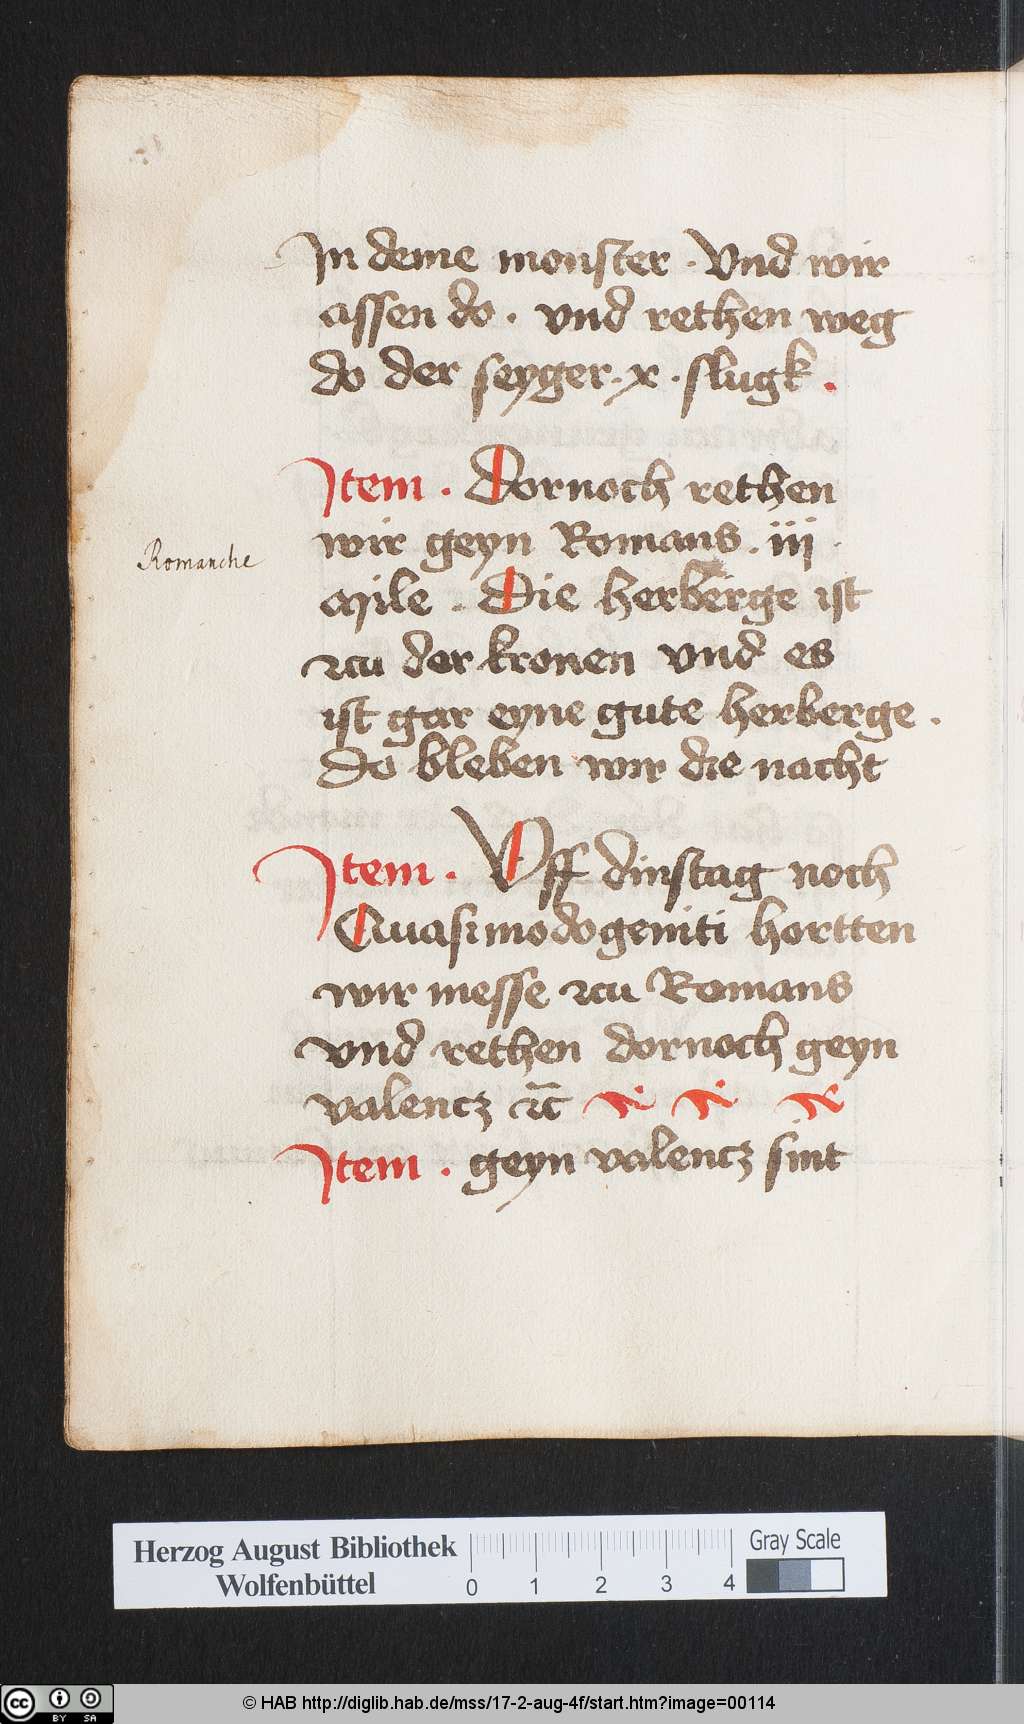 In deme monster . Vnd wir
assen do . vnd rethen weg
do der seyger . x . slugk .
Item . Dornoch rethen
wir geyn Romans . iii .
Romanche
mile . Die herberge ist
zcu der kronen vnd es
ist gar eyne gute herberge .
Do bleben wir die nacht
Item . Vff dinstag noch
Quasimodogeniti hortten
wir messe zcu Romans
vnd rethen dornoch geyn
valencz
Item . geyn valencz sint
Herzog August Bibliothek
Wolfenbüttel
0 1 2 3 4
Gray Scale
cc BY SA
© HAB http://diglib.hab.de/mss/17-2-aug-4f/start.htm?image=00114